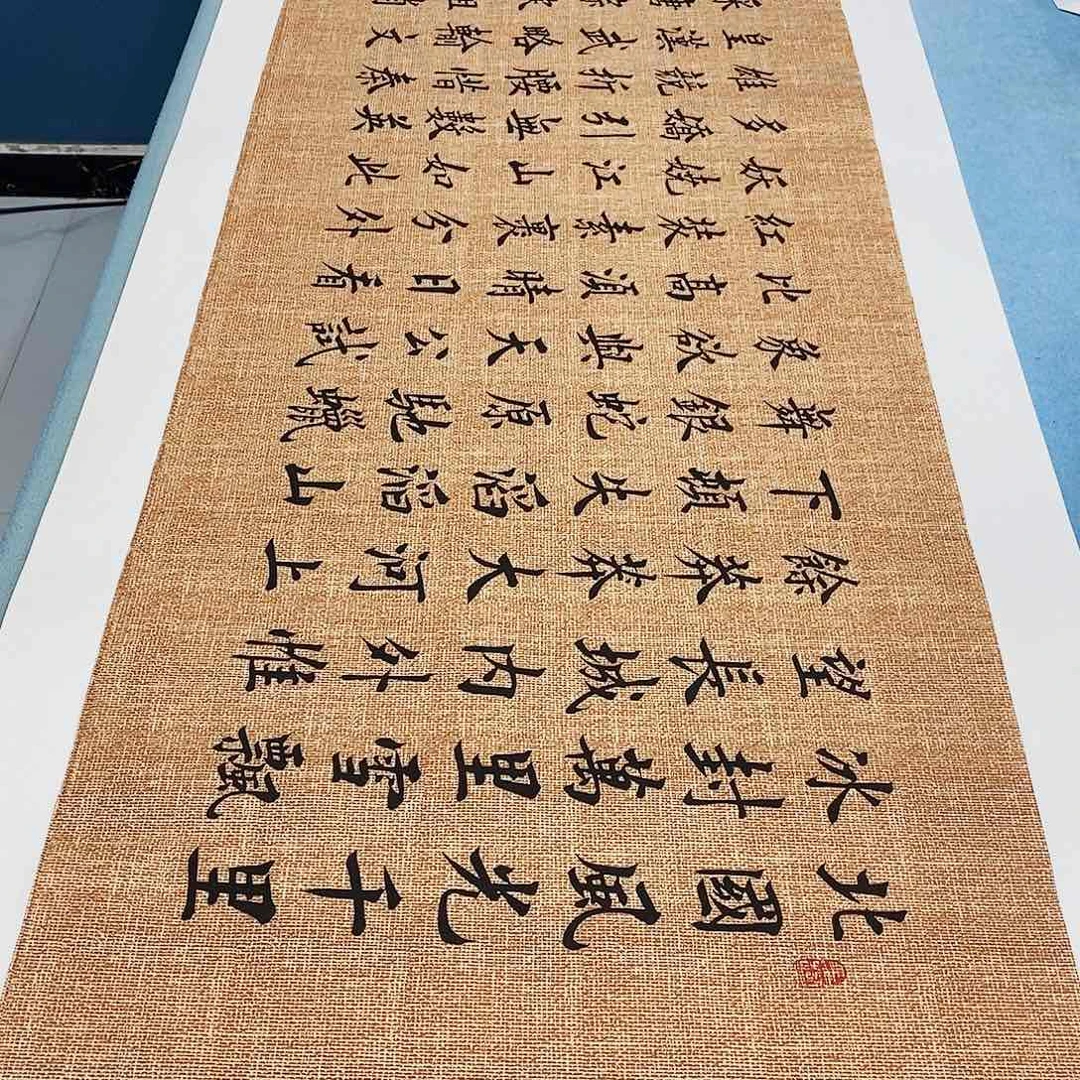 北國風光千里
冰封萬里雪飄
望長城內外惟
餘莽莽大河上
下頓失滔滔山
舞銀蛇原馳蠟
象欲與天公試
比高須晴日看
紅裝素裹分外
妖嬈江山如此
多嬌引無數英
雄競折腰惜秦
皇漢武略輸文